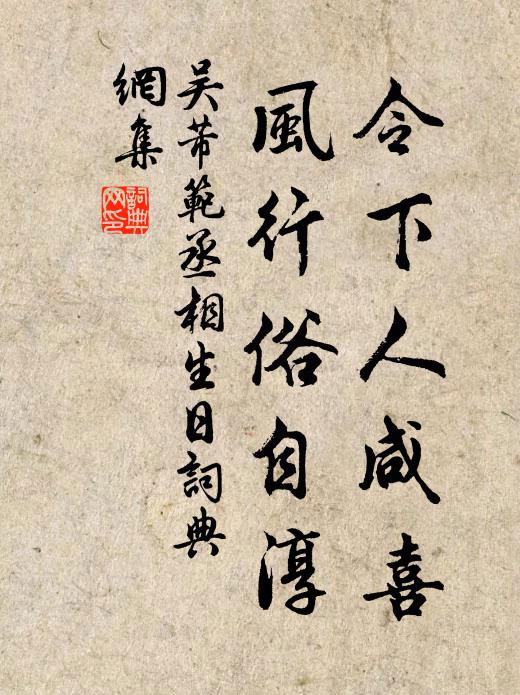 令下人咸喜
風行俗自淳
吴芾範丞相生日詞典
網集
詞典網印